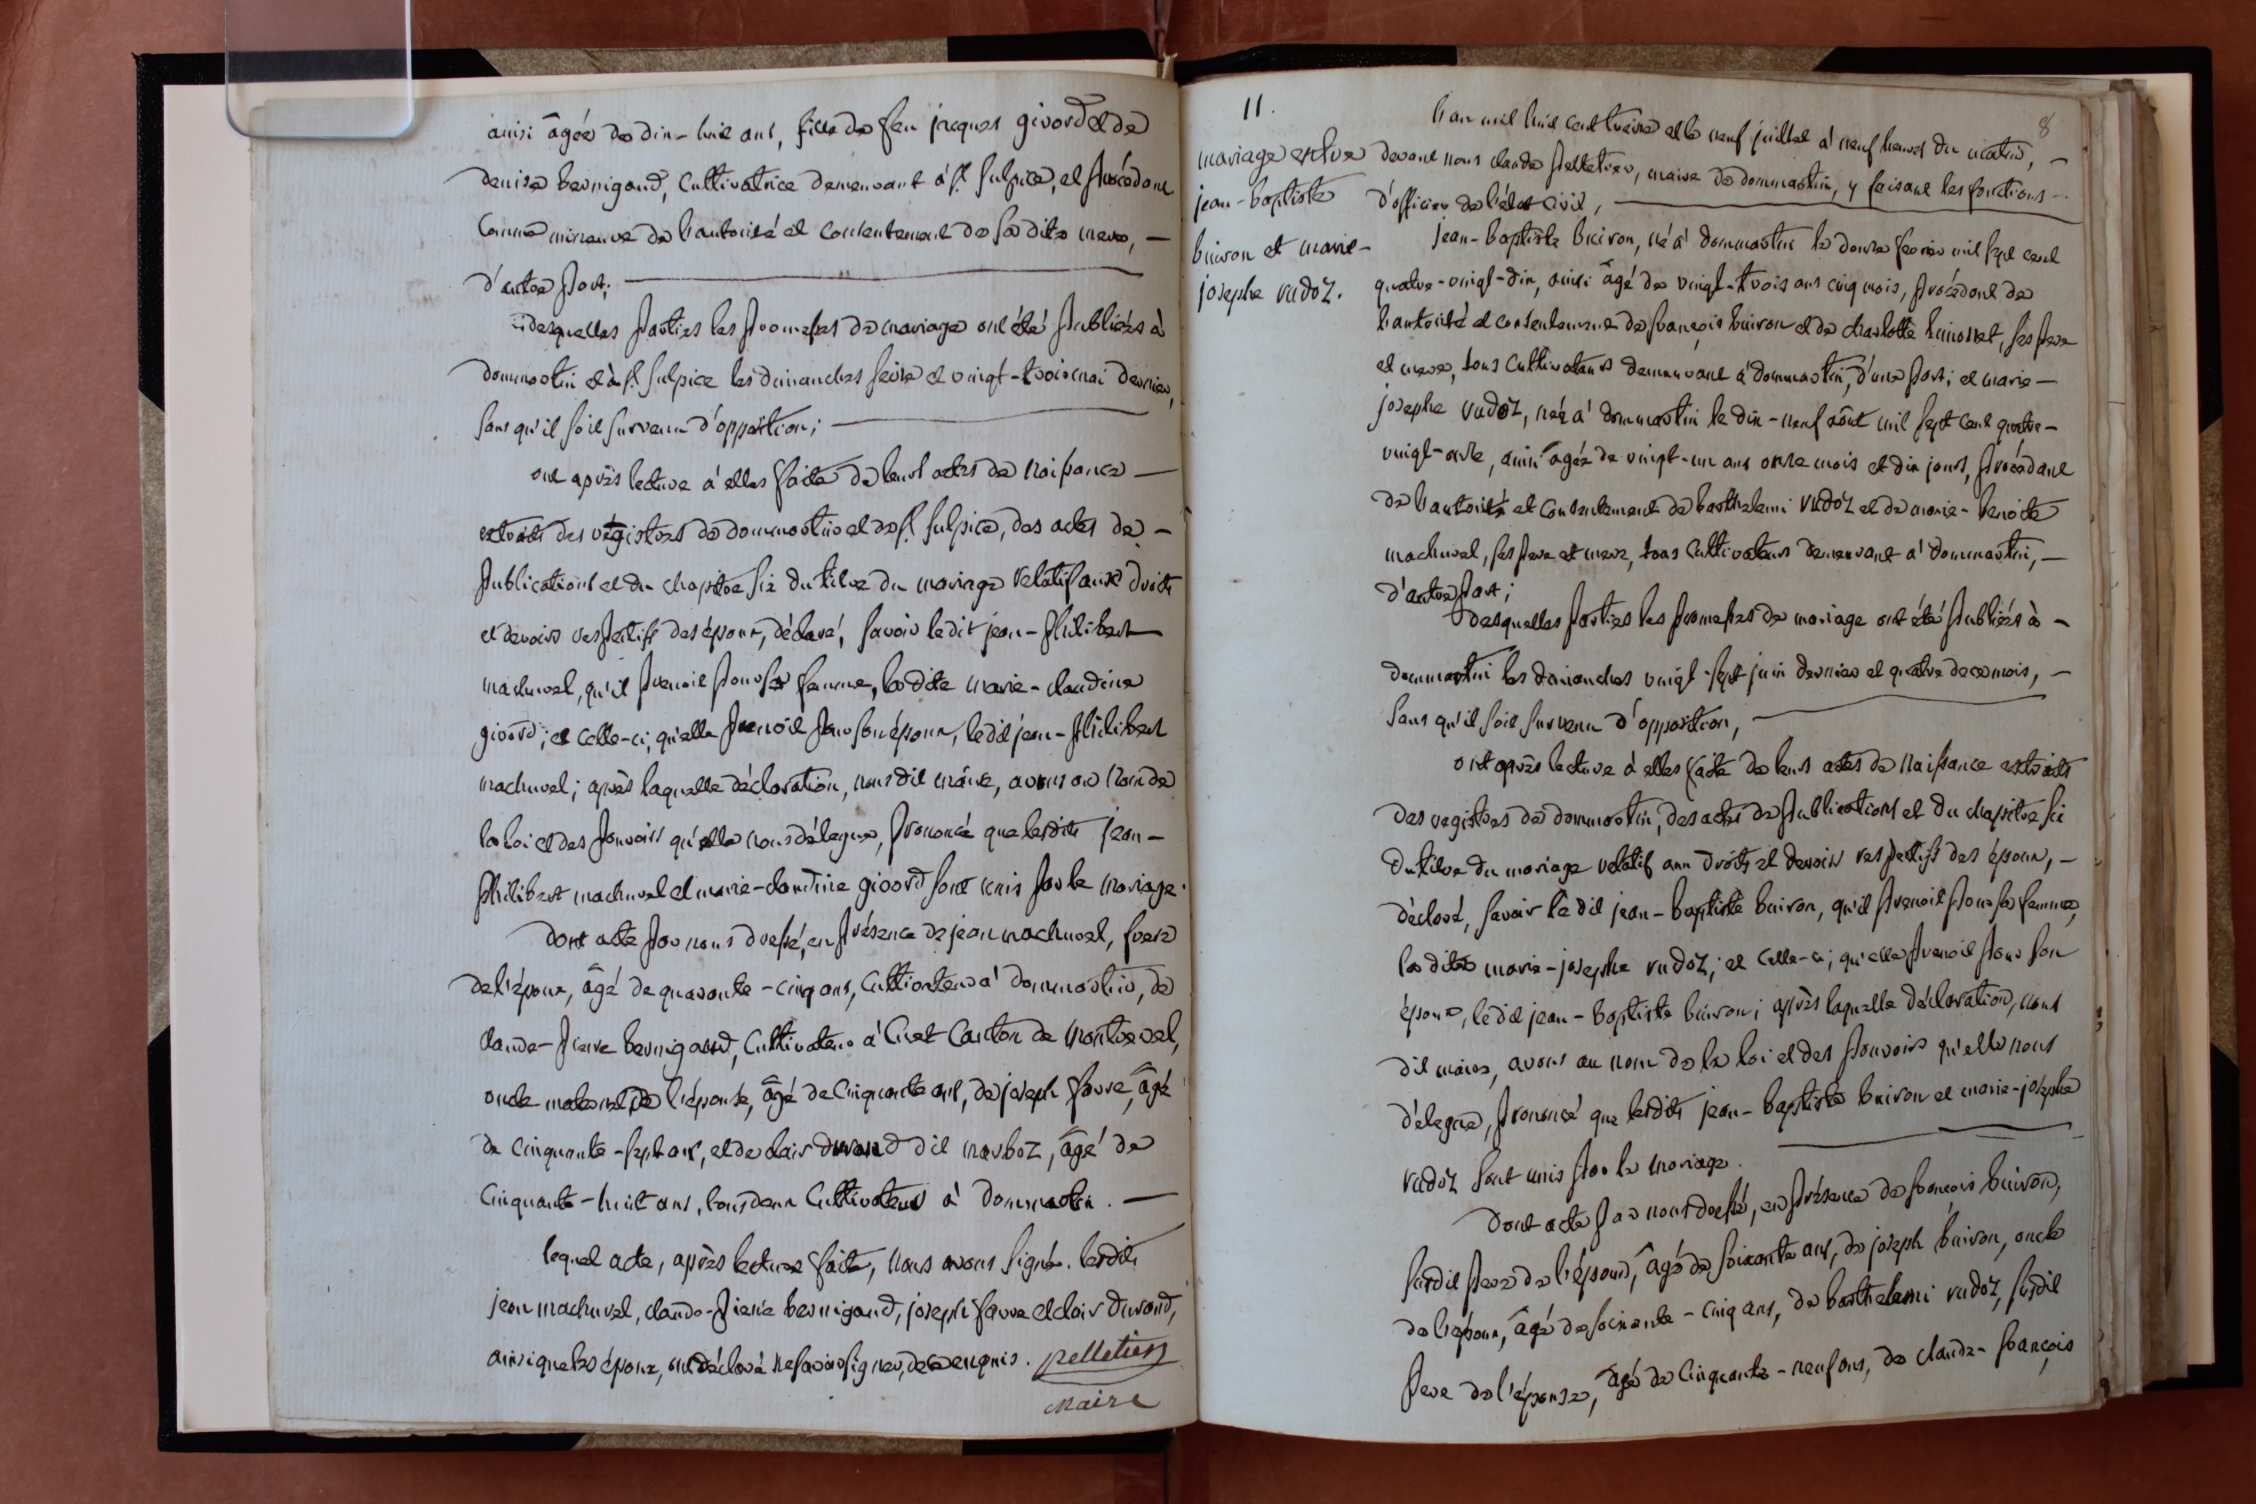 ainsi âgée de dix-huit ans, fille de feu jacques givord et de
denise bernigaud, cultivatrice demeurant à st sulpice, et procédant
comme mineure de l'autorité et consentement de sa dite mere, —
d'autre part; —
desquelles parties les promesses de mariage ont été publiées à
dommartin et à st sulpice les dimanches seize et vingt-trois mai dernier,
sans qu'il soit survenu d'opposition; —
ont après lecture à elles faite de leurs actes de naissance —
extraits des régistres de dommartin et de st sulpice, des actes de —
publications et du chapitre six du titre du mariage relatif aux droits
et devoirs respectifs des époux, déclaré, savoir ledit jean-philibert
machurel, qu'il prenoit pour sa femme, la dite marie-claudine
givord; et celle-ci, qu'elle prenoit pour son époux, ledit jean-philibert
machurel; après laquelle déclaration, nous dit maire, avons au nom de
la loi et des pouvoirs qu'elle nous délegue, prononcé que lesdits jean-
philibert machurel et marie-claudine givord sont unis par le mariage.
dont acte par nous dressé, en présence de jean machurel, frere
de l'époux, âgé de quarante-cinq ans, cultivateur à dommartin, de
claude-pierre bernigaud, cultivateur à curt canton de montrevel,
oncle maternel de l'épouse, âgé de cinquante ans, de joseph favre, âgé
de cinquante-sept ans, et de clair durand dit marboz, âgé de
cinquante-huit ans, tous deux cultivateurs à dommartin. —
lequel acte, après lecture faite, nous avons signé. lesdits
jean machurel, claude-pierre bernigaud, joseph favre et clair durand,
ainsi que les époux, ont déclaré ne savoir signer, de ce enquis. pelletier
maire
8
11.
mariage entre
jean-baptiste
buiron et marie-
josephe rudoz.
l'an mil huit cent treize et le neuf juillet à neuf heures du matin, —
devant nous claude pelletier, maire de dommartin, y faisant les fonctions —
d'officier de l'état civil, —
jean-baptiste buiron, né à dommartin le douze fevrier mil sept cent
quatre-vingt-dix, ainsi âgé de vingt-trois ans cinq mois, procédant de
l'autorité et consentement de françois buiron et de charlotte humonet, ses pere
et mere, tous cultivateurs demeurant à dommartin, d'une part; et marie-
josephe rudoz, née à dommartin le dix-neuf aôut mil sept cent quatre-
vingt-onze, ainsi agée de vingt-un ans onze mois et dix jours, procédant
de l'autorité et consentement de barthelemi rudoz et de marie-benoite
machurel, ses pere et mere, tous cultivateurs demeurant à dommartin, —
d'autre part;
desquelles parties les promesses de mariage ont été publiées à —
dommartin les dimanches vingt-sept juin dernier et quatre de ce mois, —
sans qu'il soit survenu d'opposition, —
ont après lecture à elles faite de leurs actes de naissance extraits
des registres de dommartin, des actes de publications et du chapitre six
du titre du mariage relatif aux droits et devoirs respectifs des époux, —
déclaré, savoir le dit jean-baptiste buiron, qu'il prenoit pour sa femme,
la dite marie-josephe rudoz; et celle-ci; qu'elle prenoit pour son
époux, ledit jean-baptiste buiron; après laquelle déclaration, nous
dit maire, avons au nom de la loi et des pouvoirs qu'elle nous
délegue, prononcé que lesdits jean-baptiste buiron et marie-josephe
rudoz sont unis par le mariage. —
dont acte par nous dressé, en présence de françois buiron,
susdit pere de l'époux, âgé de soixante ans, de joseph buiron, oncle
de l'époux, âgé de soixante-cinq ans, de barthelemi rudoz, susdit
pere de l'épouse, âgé de cinquante-neuf ans, de claude-françois